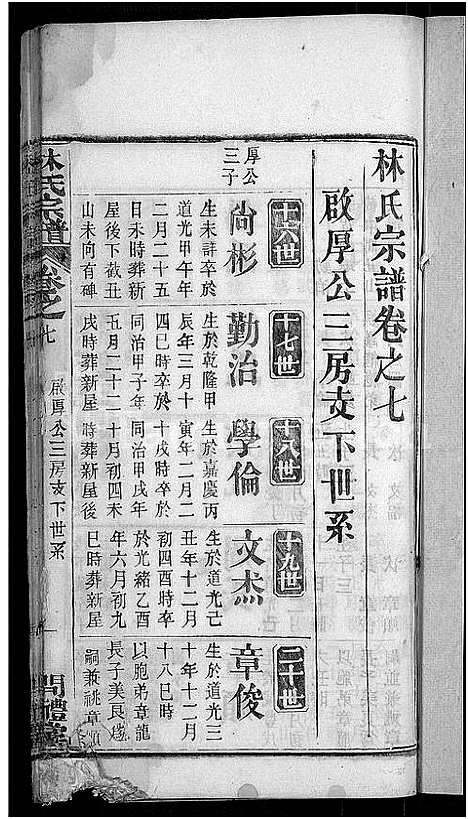 林氏宗譜卷之七
啟厚公三房支下世系
十六世
十七世
十八世
十九世
二十世
厚公
三子
尚彬
生未詳卒於
道光甲午年
二月二十五
日未時葬新
屋後下截丑
山未向有碑
勤治
生於乾隆甲
辰年三月十
四巳時卒於
同治甲子年
五月二十二
戌時葬新屋
學倫
生於嘉慶丙
寅年二月二
十戌時卒於
同治甲戌年
十月初四未
時葬新屋後
文杰
生於道光己
丑年十二月
初四酉時卒
於光緒乙酉
年六月初九
巳時葬新屋
章俊
生於道光三
十年十二月
十八巳時
以胞弟章龍
長子美良
嗣兼祧章
林氏宗譜
卷之七
啟厚公三房支下世系
一
問禮堂